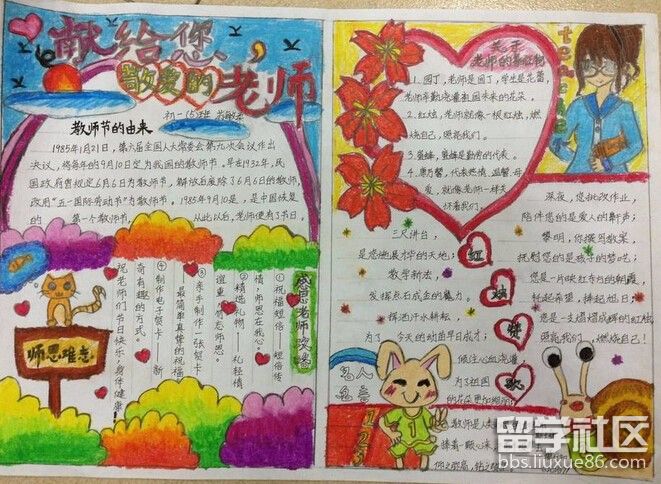 献给您，
敬爱的老师
初一(5)班
教师节的由来
1985年1月21日，第六届全国人大常委会第九次会议作出
决议，将每年的9月10日定为我国的教师节，早在1932年，民
国政府曾规定6月6日为教师节，解放后废除了6月6日的教师节，
改用"五一国际劳动节"为教师节。1985年9月10日，是中国恢复
的 第一个教师节， 从此以后，老师便有了节日。
感恩老师攻略
①祝福短信——短信传
情，师恩在我心。
②精选礼物 礼轻情
谊重
③亲手制作一张贺卡——
最简单真挚的祝福
④制作电子贺卡——新
奇有趣的方式。
祝老师们节日快乐，身体健康！
师恩难忘
关于
老师的
teacher
1、园丁，老师是园丁，学生是花蕾，
老师辛勤浇灌祖国未来的花朵。
2、红烛，老师就像一根红烛，燃
烧自己，照亮我们。
3、蜜蜂，蜜蜂是勤劳的代表。
4、康乃馨，代表热情、温馨、母
爱，就像老师一样关
怀着我们。
红
烛
颂
歌
三尺讲台，
是您施展才华的天地；
教学新法，
发挥点石成金的魔力。
挥洒汗水耕耘，
为了 今天的幼苗早日成才；
倾注心血浇灌
为了祖国
的花朵更加绚丽
深夜，您批改作业，
陪伴您的是爱人的鼾声；
黎明，你撰写教案，
抚慰您的是孩子的梦呓；
您是一片映红春与的朝霞，
托起希望，捧起旭日；
您是一支熠熠成辉的红烛，
照亮我们，燃烧自己！
名人
名言
123
留学社区
bbs.liuxue86.com